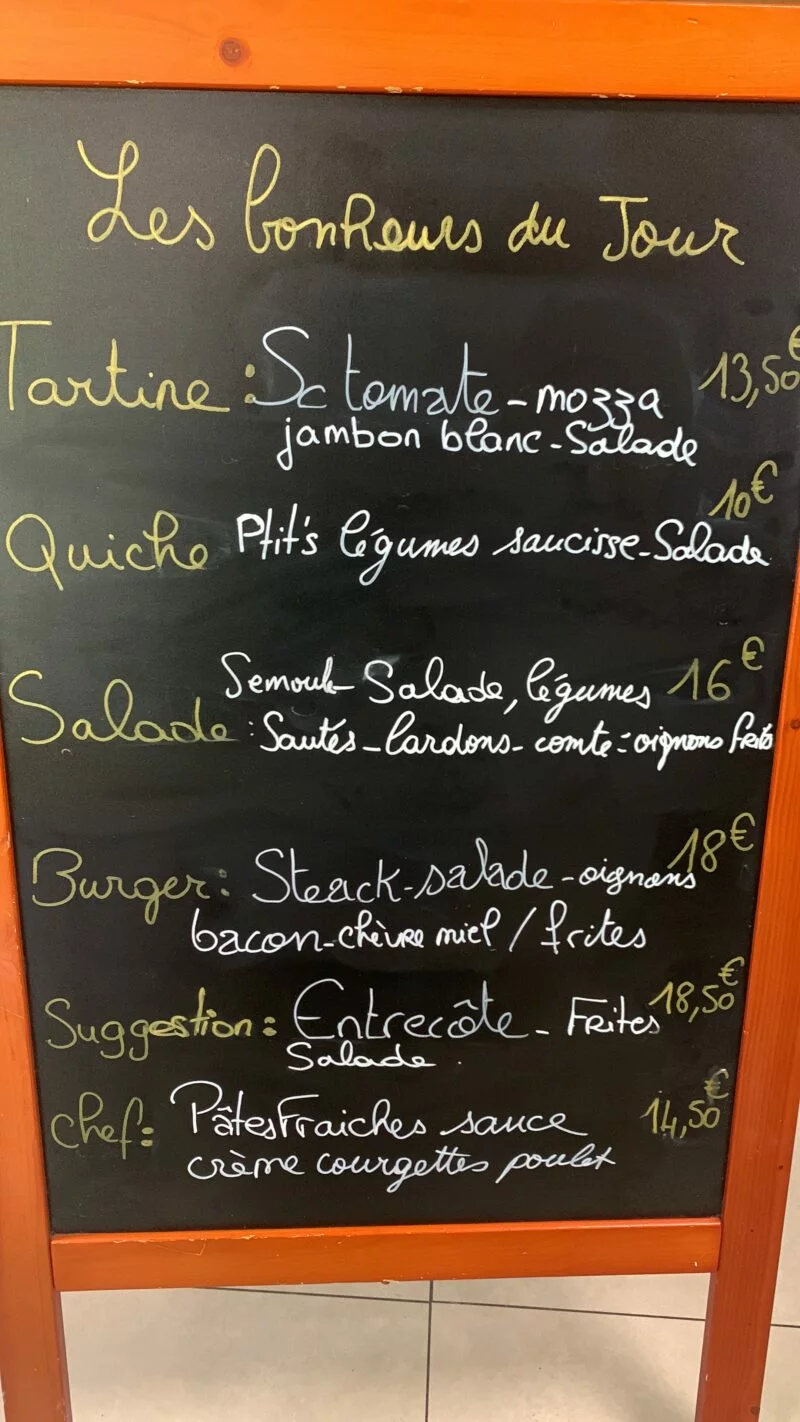 Les bonheurs du Jour
Tartine : Sc tomate - mozza 13,50€
jambon blanc - Salade
10€
Quiche Ptit's légumes saucisse - Salade
Semoule - Salade, légumes 16€
Salade : Sautés - lardons - comté - oignons frits
Burger : Steack - salade - oignons 18€
bacon - chèvre miel / frites
Suggestion : Entrecôte - Frites 18,50€
Salade
Chef : Pâtes Fraiches sauce 14,50€
crème courgettes poulet